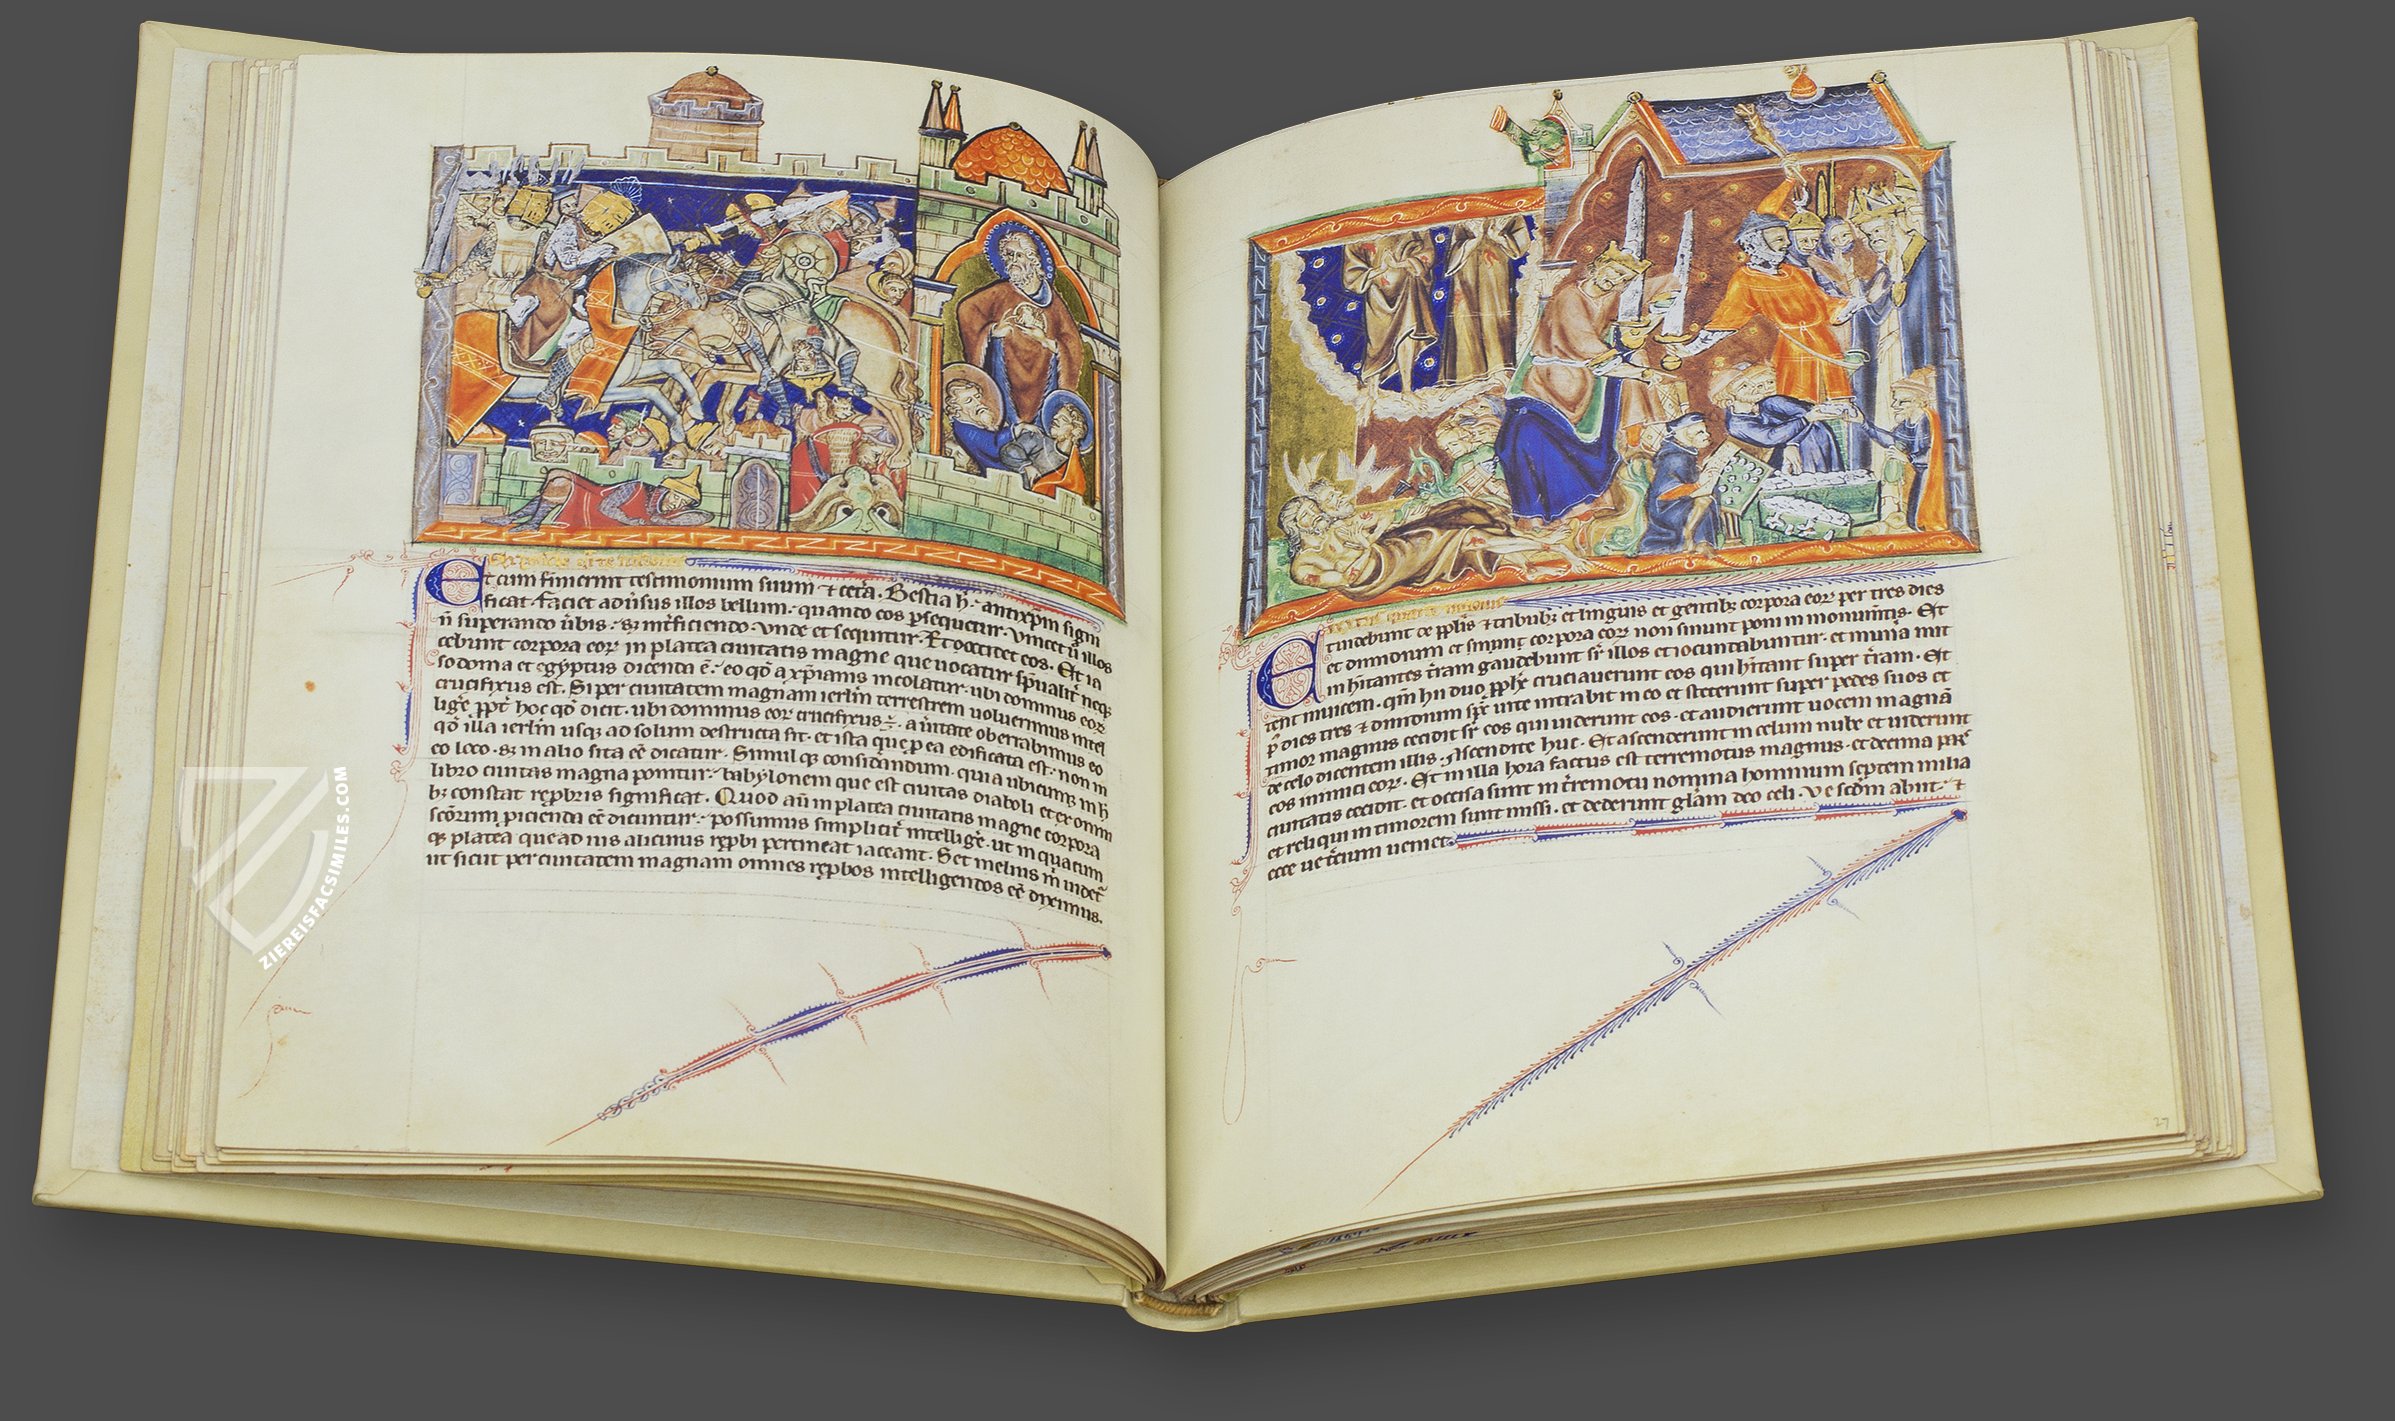 Et cum finierint testimonium suum ⁊ cetͣ. Bestia h̄. antixp̄m signi
ficat. faciet adūsus illos bellum. quando eos ꝑsequetur. Vincet ū illos
n̄ superando ūbis. sꝫ int̄ficiendo. vnde et sequitur. Et occidet eos. Et ia
cebunt corpora eoꝝ in platea ciuitatis magne que uocatur sp̄ualit̄ neqꝫ
sodoma et egyptus dicenda ē. eo qd̄ a xp̄ianis incolatur. ubi dominus eoꝝ
crucifixus est. Si per ciuitatem magnam ierlm̄ terrestrem uoluerimus intel
liḡe ꝓpt̄ hoc qd̄ dicit. ubi dominus eoꝝ crucifixus ÷. a ūitate oberrabimus eo
qd̄ illa ierlm̄ usqꝫ ad solum destructa sit. et ista que ꝑ ea edificata est. non in
eo loco. sꝫ in alio sita ee̅ dicatur. Simul qꝫ considandum. quia ubicumqꝫ in h̄
libro ciuitas magna ponitur. babylonem que est ciuitas diaboli et ex omni
bꝫ constat rep̄bris significat. Quod aū in platea ciuitatis magne corpora
sc̄orum picienda ee̅ dicuntur. possumus simplicit̄ intelliḡe. ut in quacum
qꝫ platea que ad ius alicuius rep̄bi pertineat iaceant. Set melius m̄ uidet̄
ut sicut per ciuitatem magnam omnes rep̄bos intelligendos ee̅ diximus.
Et uidebunt de pp̄lis ⁊ tribubꝫ et linguis et gentibꝫ corpora eoꝝ per tres dies
et dimidium et sinunt corpora eoꝝ non sinunt poni in monumtis. Et
inhitantes t̄ram gaudebunt sr̄ illos et iocundabuntur. et mun̄a mit
tent inuicem. qm̄ hii duo ꝓph̄e cruciauerunt eos qui hītant super t̄ram. Et
ꝑ dies tres ⁊ dimidium spc̄ uite intrabit in eo et steterunt super pedes suos et
timor magnus cecidit sr̄ eos qui uiderunt eos. et audierunt uocem magnā
de celo dicentem illis. Ascendite huc. Et ascenderunt in celum nube et uiderunt
eos inimici eoꝝ. Et in illa hora factus est terremotus magnus. et decima pars
ciuitatis cecidit. et occisa sunt in t̄remotu nomina hominum septem milia
et reliqui in timorem sunt missi. et dederunt gl̄am deo celi. Ve sc̄dm abiit. ⁊
ecce ue t̄cium ueniet
27
ZIEREISFACSIMILES.COM